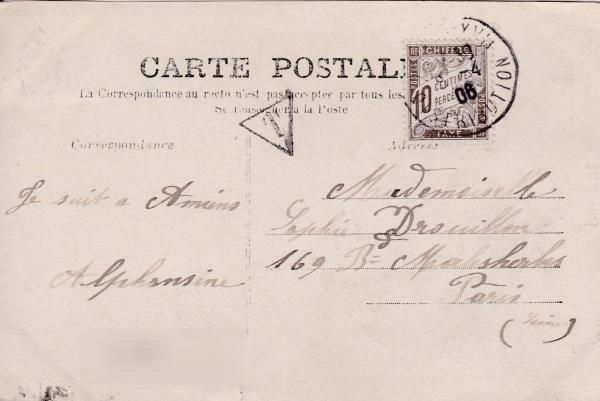 CARTE POSTALE
La Correspondance au recto n'est pas acceptée par tous les
Se renseigner à la Poste
Correspondance
Adresse
CHIFFRE
10
CENTIMES
PERCEVOIR
TAXE
4
06
T
Je suit a Amiens
Alphonsine
Mademoiselle
Sophie Drouillon
169 Bd Malesherbes
Paris
(Seine)